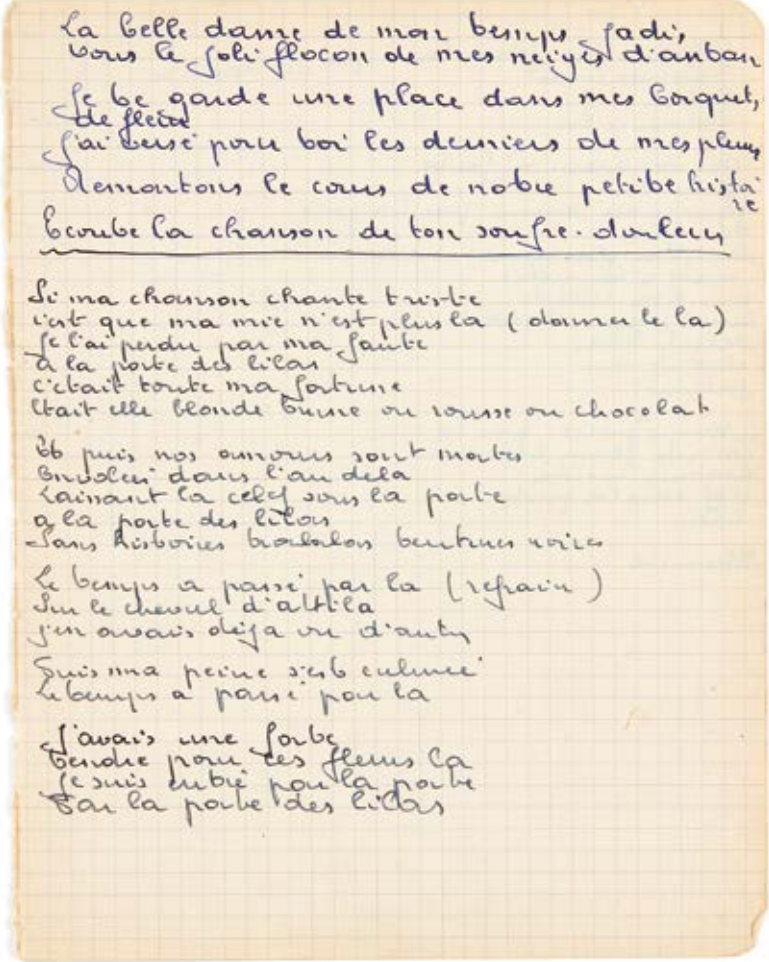 La belle dame de mon temps jadis,
vous le joli flocon de mes neiges d'antan
Je te garde une place dans mes bosquets
de fleur
j'ai versé pour toi les derniers de mes pleurs
Remontons le cours de notre petite histoi
re
Ecoute la chanson de ton soufre-douleur
Si ma chanson chante triste
c'est que ma mie n'est plus la (donner le la)
Je l'ai perdu par ma faute
a la porte des lilas
c'était toute ma fortune
Etait elle blonde brune ou rousse ou chocolat
Et puis nos amours sont mortes
Envolées dans l'au dela
Laissant la celef sous la porte
a la porte des lilas
Sans histoires tralalas tentures noires
Le temps a passé par la (refrain)
Sur le cheval d'attila
j'en avais déja vu d'autres
Puis ma peine s'est
Le temps a passé par la
J'avais une
tendre pour ces fleurs la
Je suis entré par la porte
Par la porte des lilas